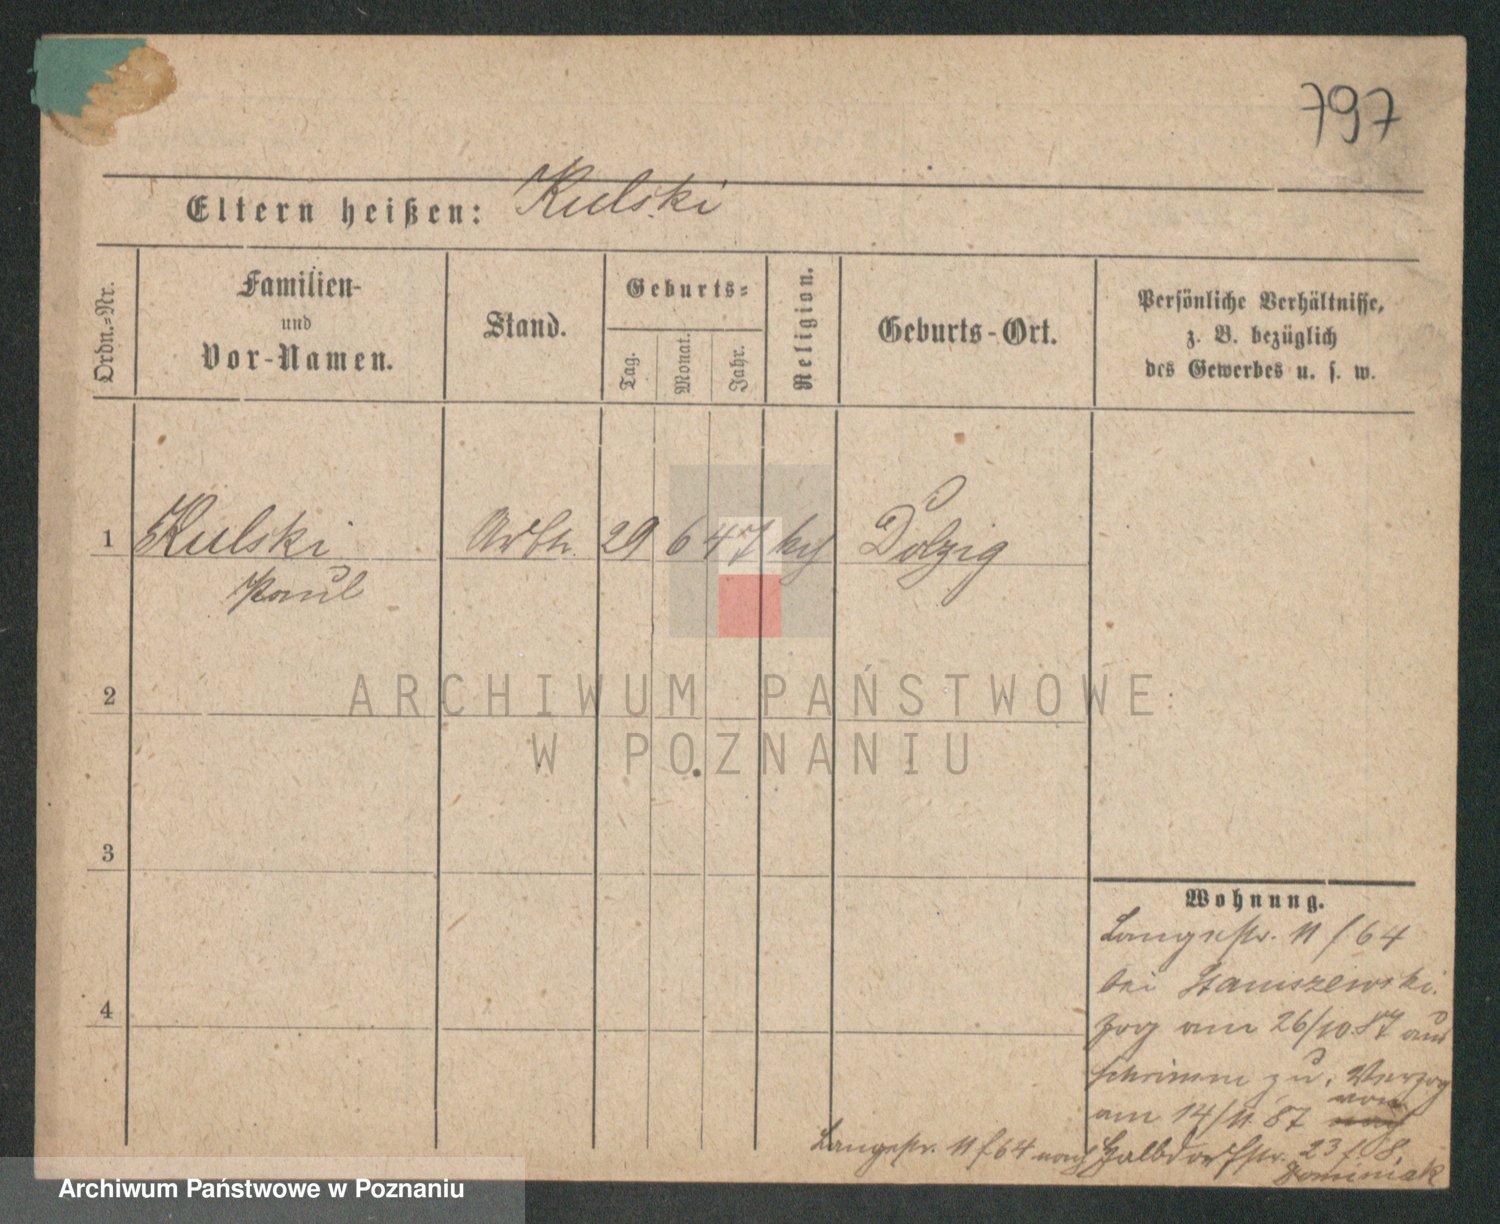 797
Eltern heißen: Kulski
Ordn.-Nr.
Familien-
und
Vor-Namen.
Stand.
Geburts-
Tag.
Monat.
Jahr.
Religion.
Geburts-Ort.
Persönliche Verhältnisse,
z. B. bezüglich
des Gewerbes u. s. w.
1 Kulski Arbtr. 29 6 47 kth Dolzig
Paul
2
3
4
ARCHIWUM PAŃSTWOWE
W POZNANIU
Wohnung.
Langestr. 11 / 64
bei Staniszewski.
zog am 26/10.87 aus
Schrimm zu. Verzog
am 14/11.87 von
Langestr. 11 / 64 nach Halbdorfstr. 23 / 08.
Dominiak
Archiwum Państwowe w Poznaniu